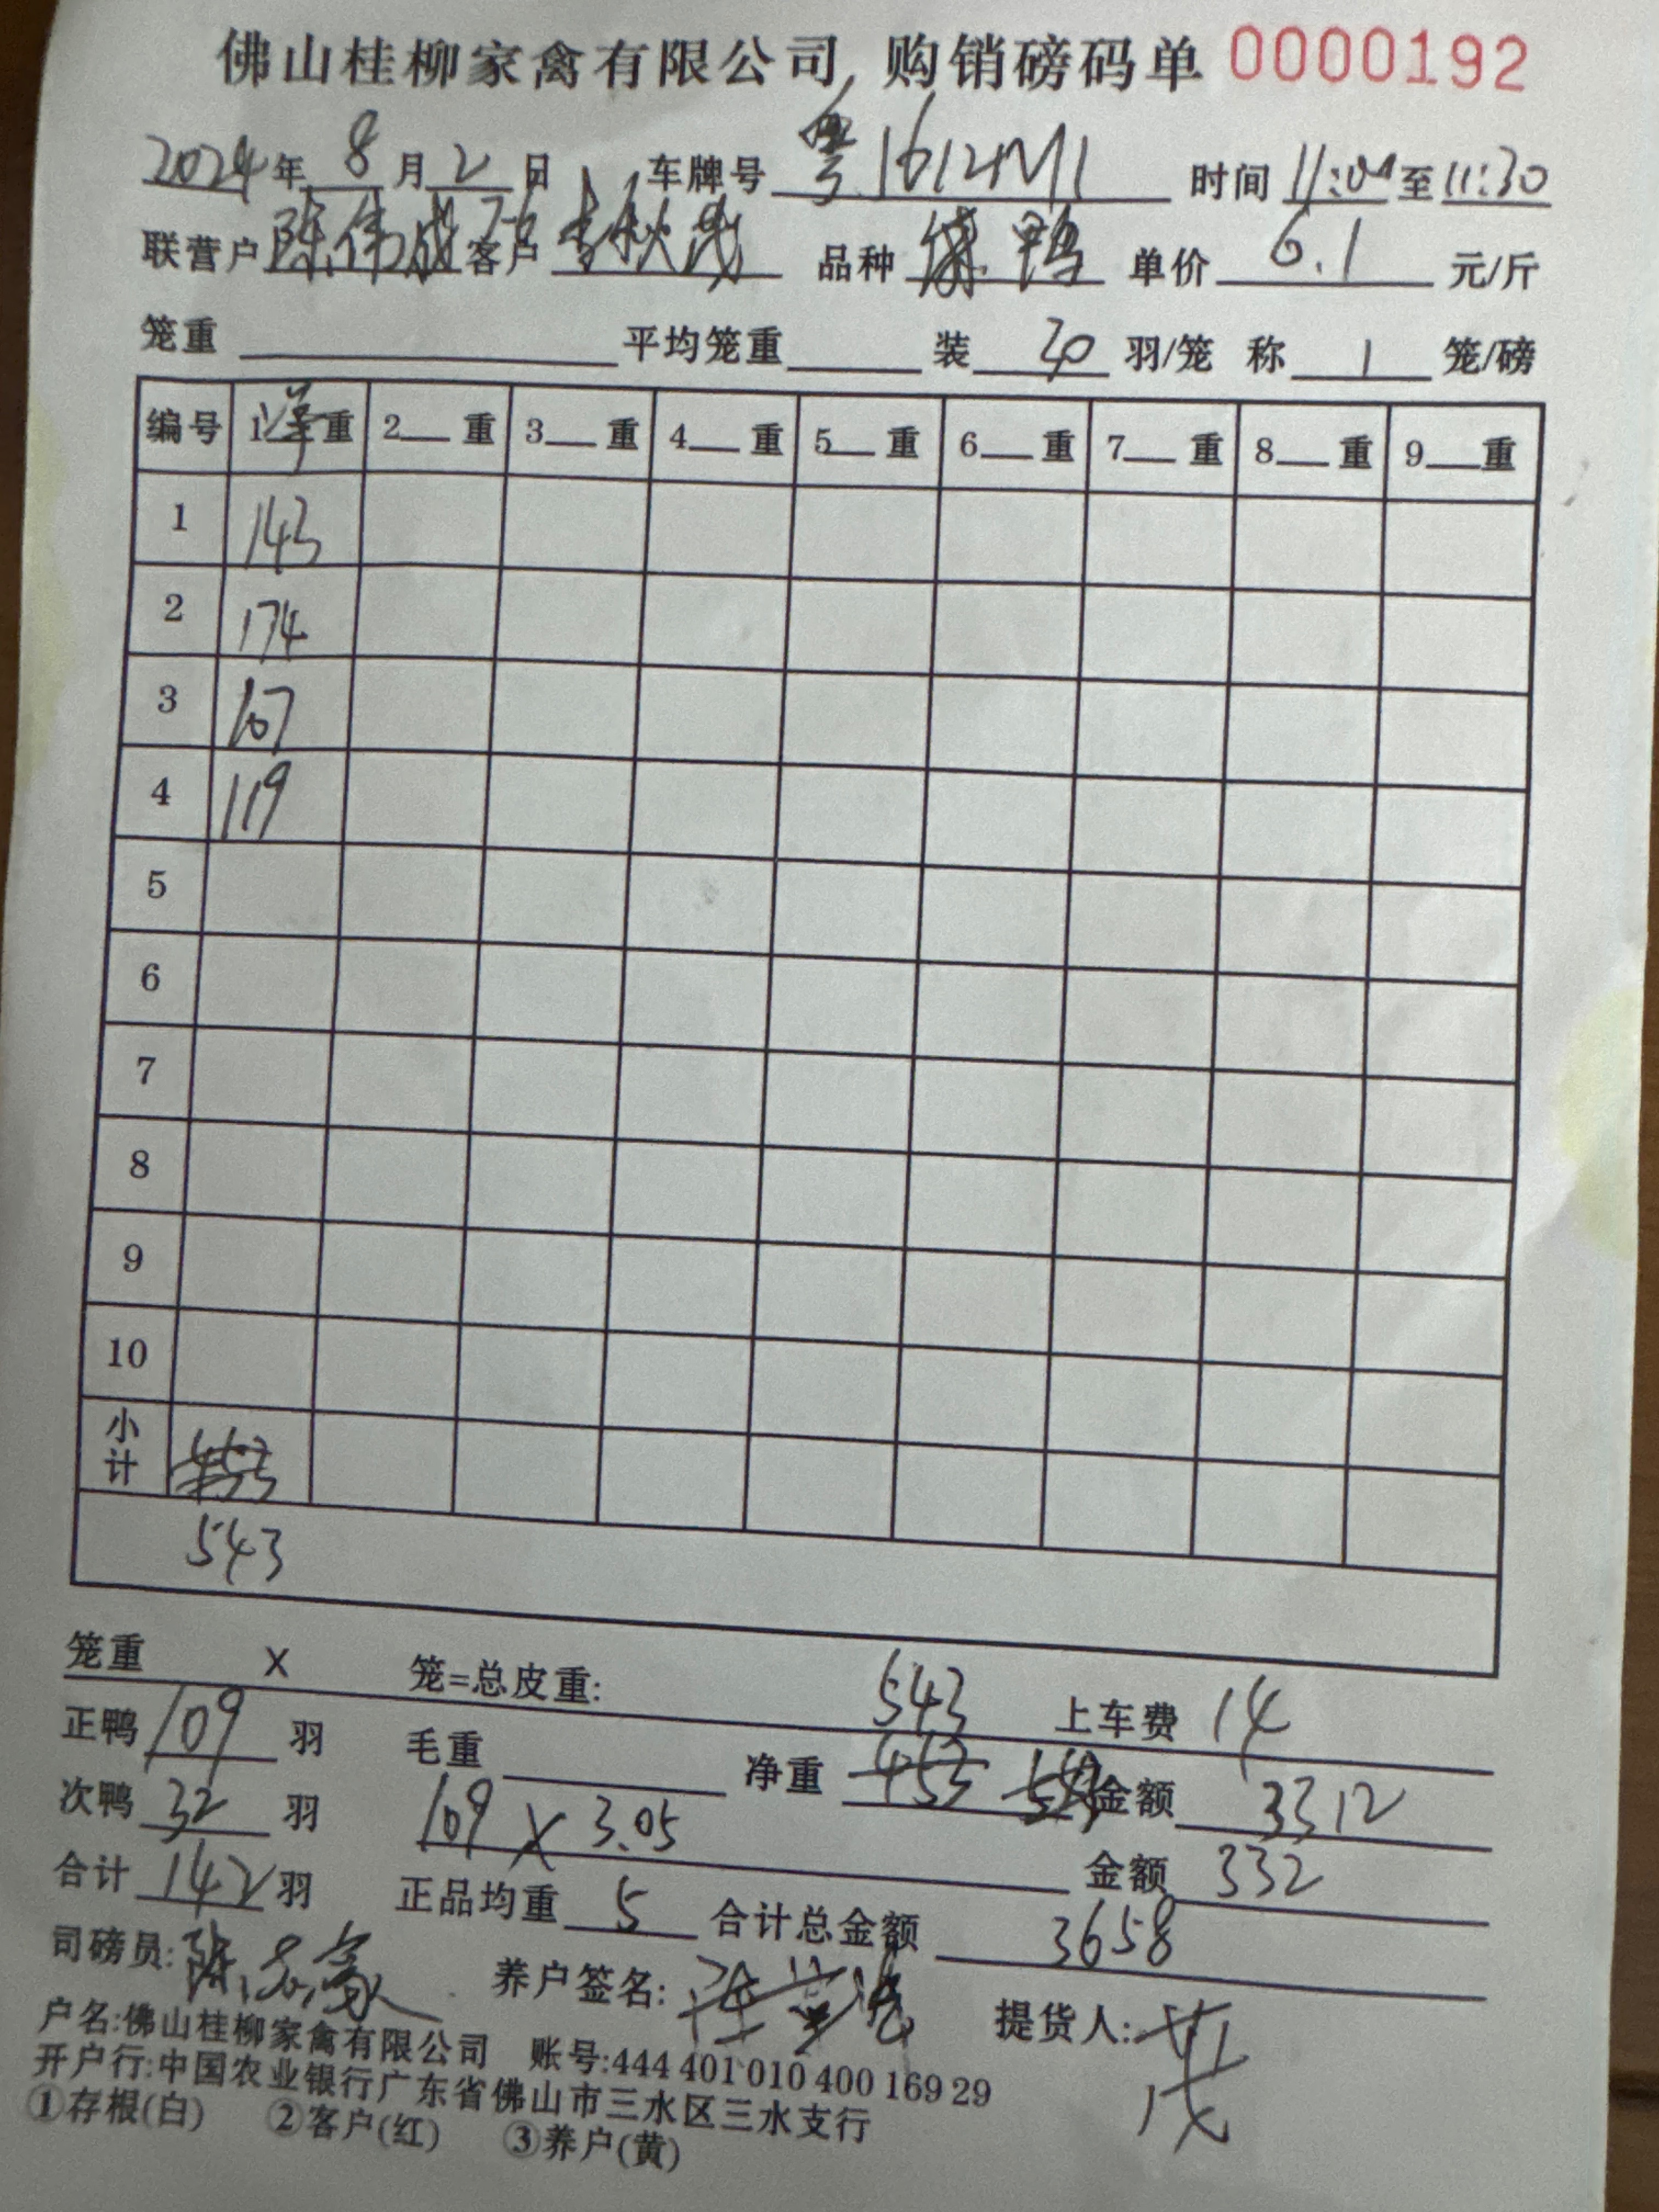 佛山桂柳家禽有限公司 购销磅码单 0000192
2024年 8 月 2 日 车牌号 粤1612M1 时间 11:04 至 11:30
联营户 陈伟成 客户 李秋茂 品种 鸭 单价 6.1 元/斤
笼重 平均笼重 装 30 羽/笼 称 1 笼/磅
编号 1 净 重 2 重 3 重 4 重 5 重 6 重 7 重 8 重 9 重
1 143
2 174
3 107
4 119
5
6
7
8
9
10
小计
543
笼重 X 笼=总皮重: 543 上车费 14
正鸭 109 羽 毛重 净重 453 543 金额 3312
次鸭 32 羽 109 X 3.05 金额 332
合计 142 羽 正品均重 5 合计总金额 3658
司磅员: 养户签名: 提货人: 茂
户名:佛山桂柳家禽有限公司 账号:444 401 010 400 169 29
开户行:中国农业银行广东省佛山市三水区三水支行
①存根(白) ②客户(红) ③养户(黄)